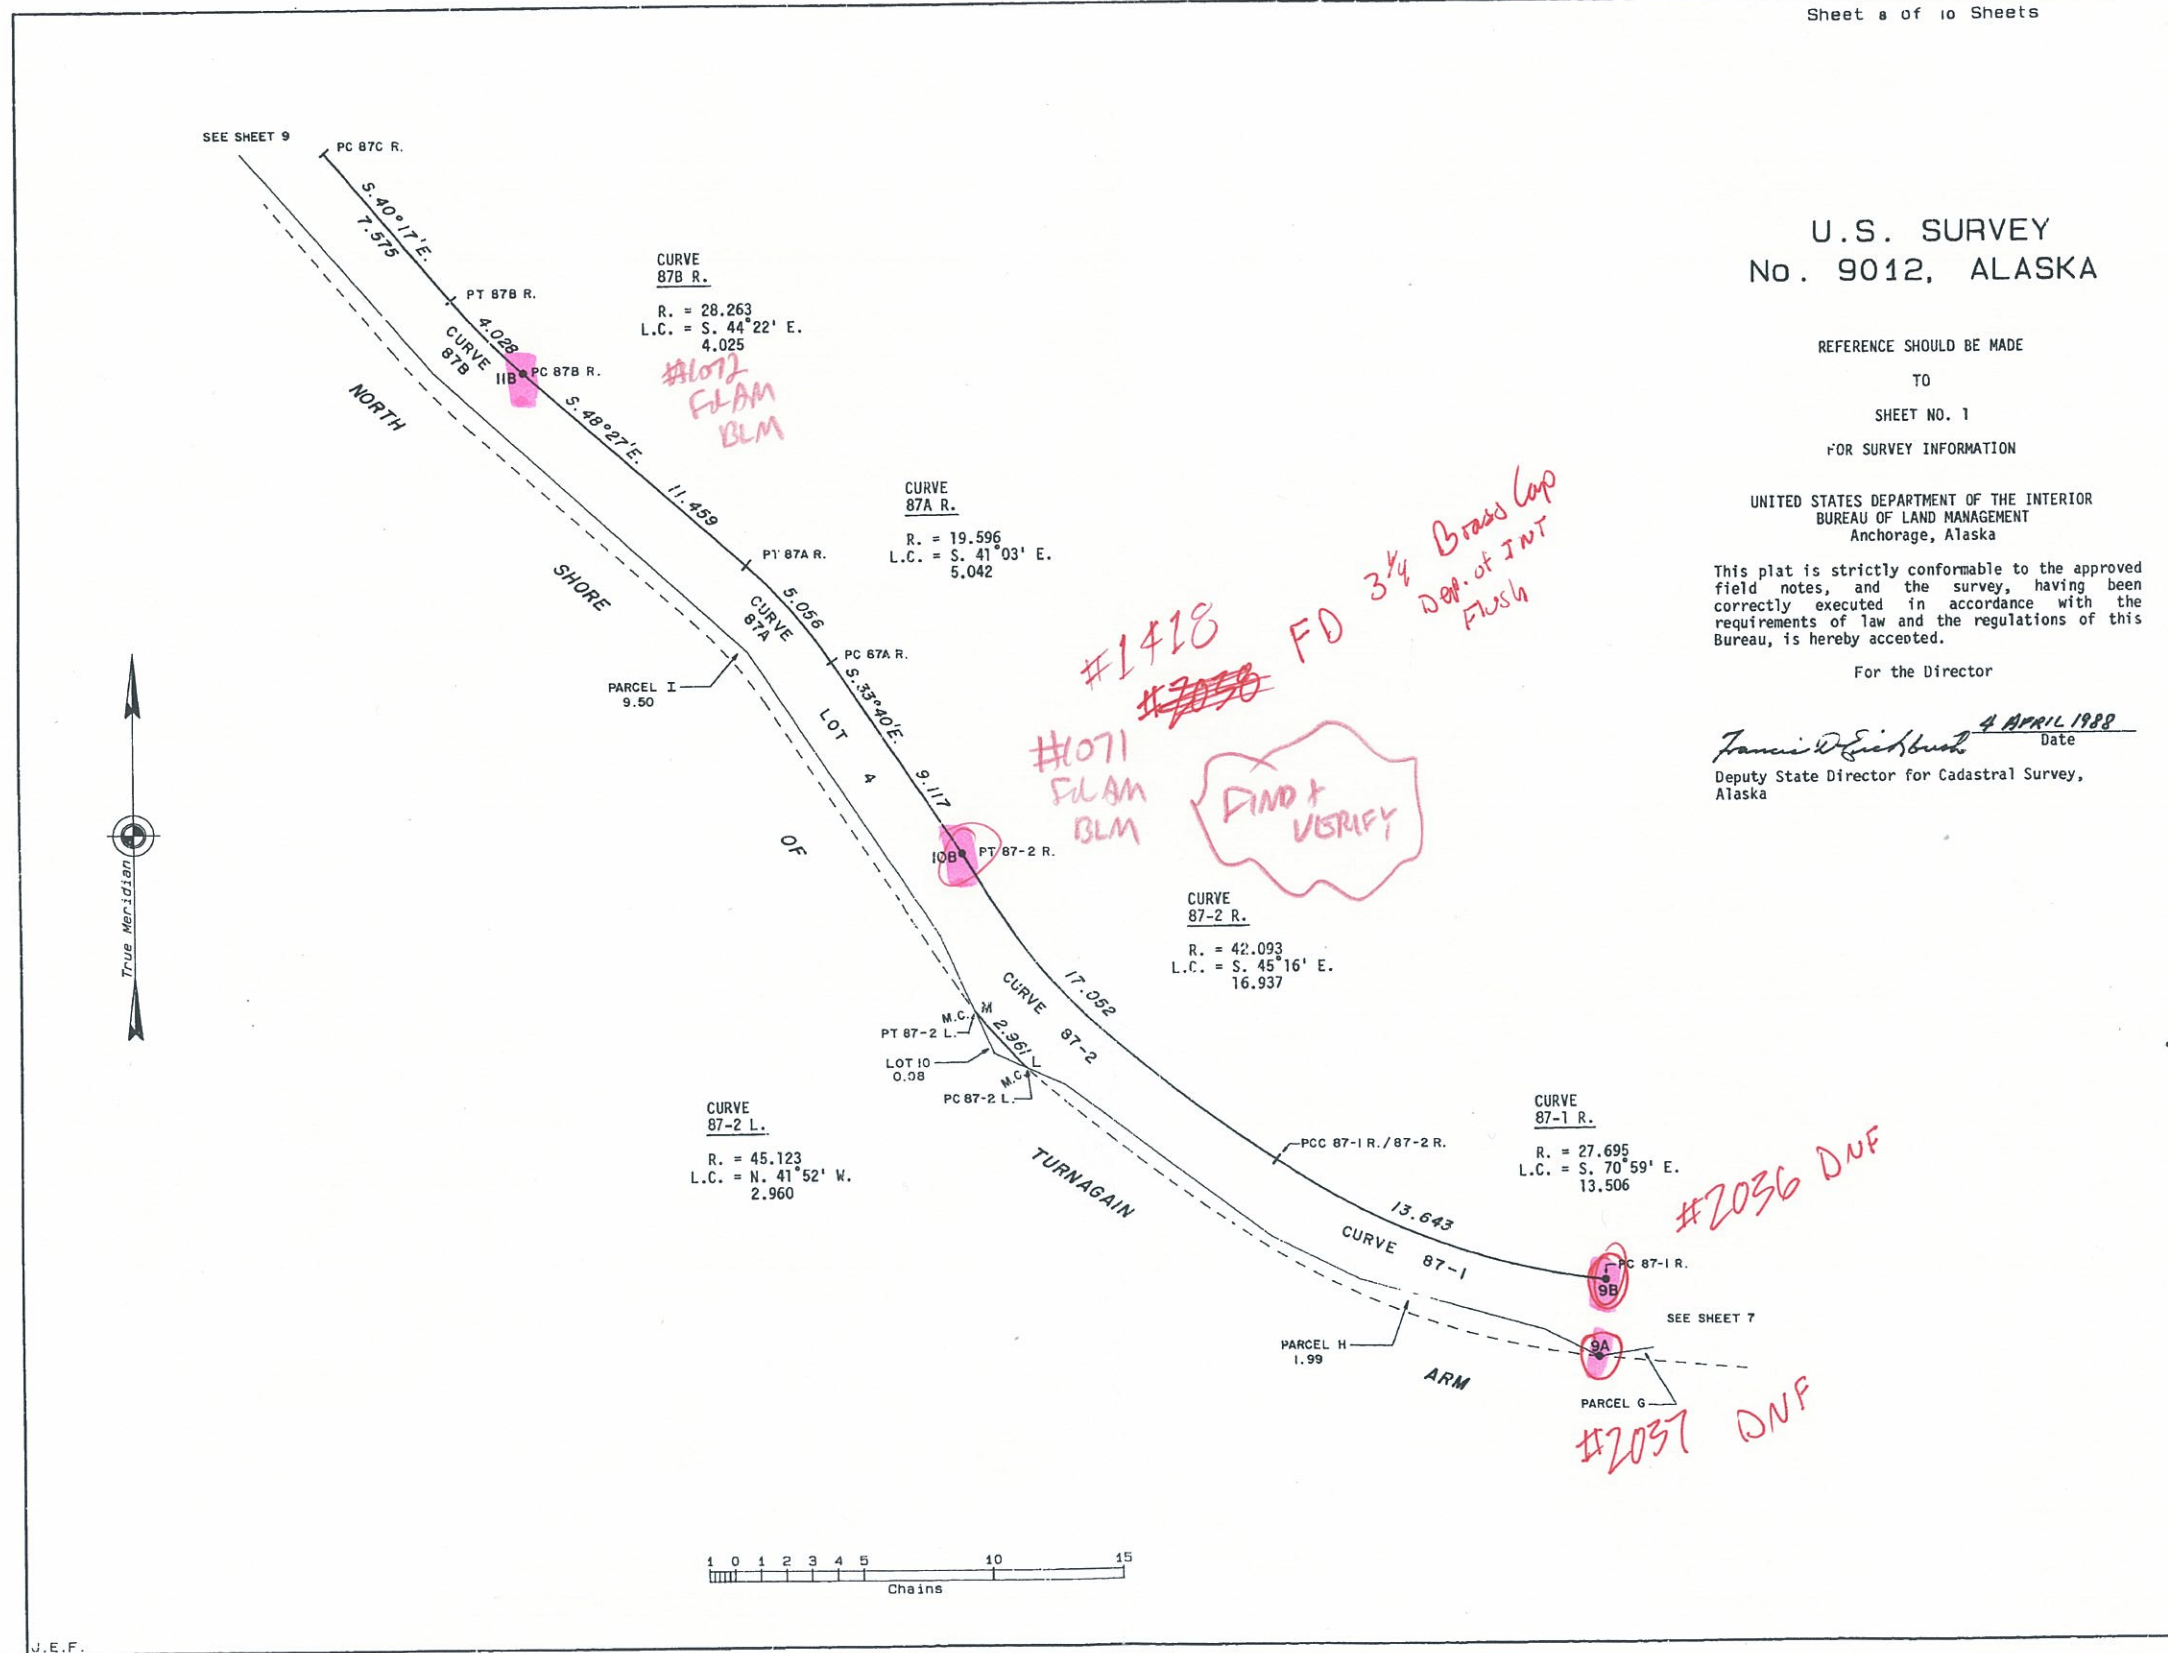 Sheet 8 of 10 Sheets
SEE SHEET 9
PC 87C R.
S.40°17'E.
7.575
PT 87B R.
4.028
CURVE
87B
11B
PC 87B R.
CURVE
87B R.
R. = 28.263
L.C. = S. 44°22' E.
4.025
#1072
Fd AM
BLM
NORTH
S.48°27'E.
11.459
CURVE
87A R.
R. = 19.596
L.C. = S. 41°03' E.
5.042
PT 87A R.
5.056
CURVE
87A
PC 87A R.
SHORE
PARCEL I
9.50
S.33°40'E.
9.117
LOT
4
OF
#1418
FD
3 1/4 Brass Cap
Dep. of INT
Flush
#2038
#1071
Fd AM
BLM
FIND +
VERIFY
10B
PT 87-2 R.
CURVE
87-2 R.
R. = 42.093
L.C. = S. 45°16' E.
16.937
17.052
CURVE 87-2
M.C. M
PT 87-2 L.
2.961
LOT 10
0.08
L
M.C.
PC 87-2 L.
CURVE
87-2 L.
R. = 45.123
L.C. = N. 41°52' W.
2.960
TURNAGAIN
PCC 87-1 R./87-2 R.
CURVE
87-1 R.
R. = 27.695
L.C. = S. 70°59' E.
13.506
#2036 DNF
13.643
CURVE 87-1
PC 87-1 R.
9B
SEE SHEET 7
PARCEL H
1.99
9A
ARM
PARCEL G
#2037 DNF
True Meridian
U.S. SURVEY
No. 9012, ALASKA
REFERENCE SHOULD BE MADE
TO
SHEET NO. 1
FOR SURVEY INFORMATION
UNITED STATES DEPARTMENT OF THE INTERIOR
BUREAU OF LAND MANAGEMENT
Anchorage, Alaska
This plat is strictly conformable to the approved
field notes, and the survey, having been
correctly executed in accordance with the
requirements of law and the regulations of this
Bureau, is hereby accepted.
For the Director
4 APRIL 1988
Francis D Eickbush
Date
Deputy State Director for Cadastral Survey,
Alaska
1 0 1 2 3 4 5 10 15
Chains
J.E.F.